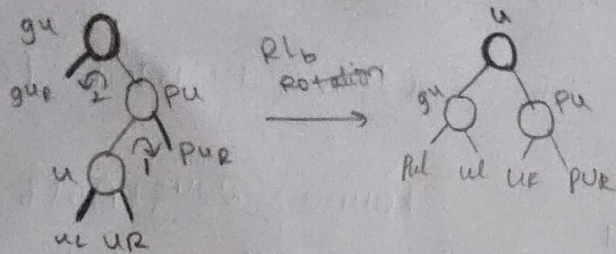 gu
gu_R
2
pu
pu_R
1
u
u_L u_R
RLb
Rotation
u
gu
pu
puL uL uR puR